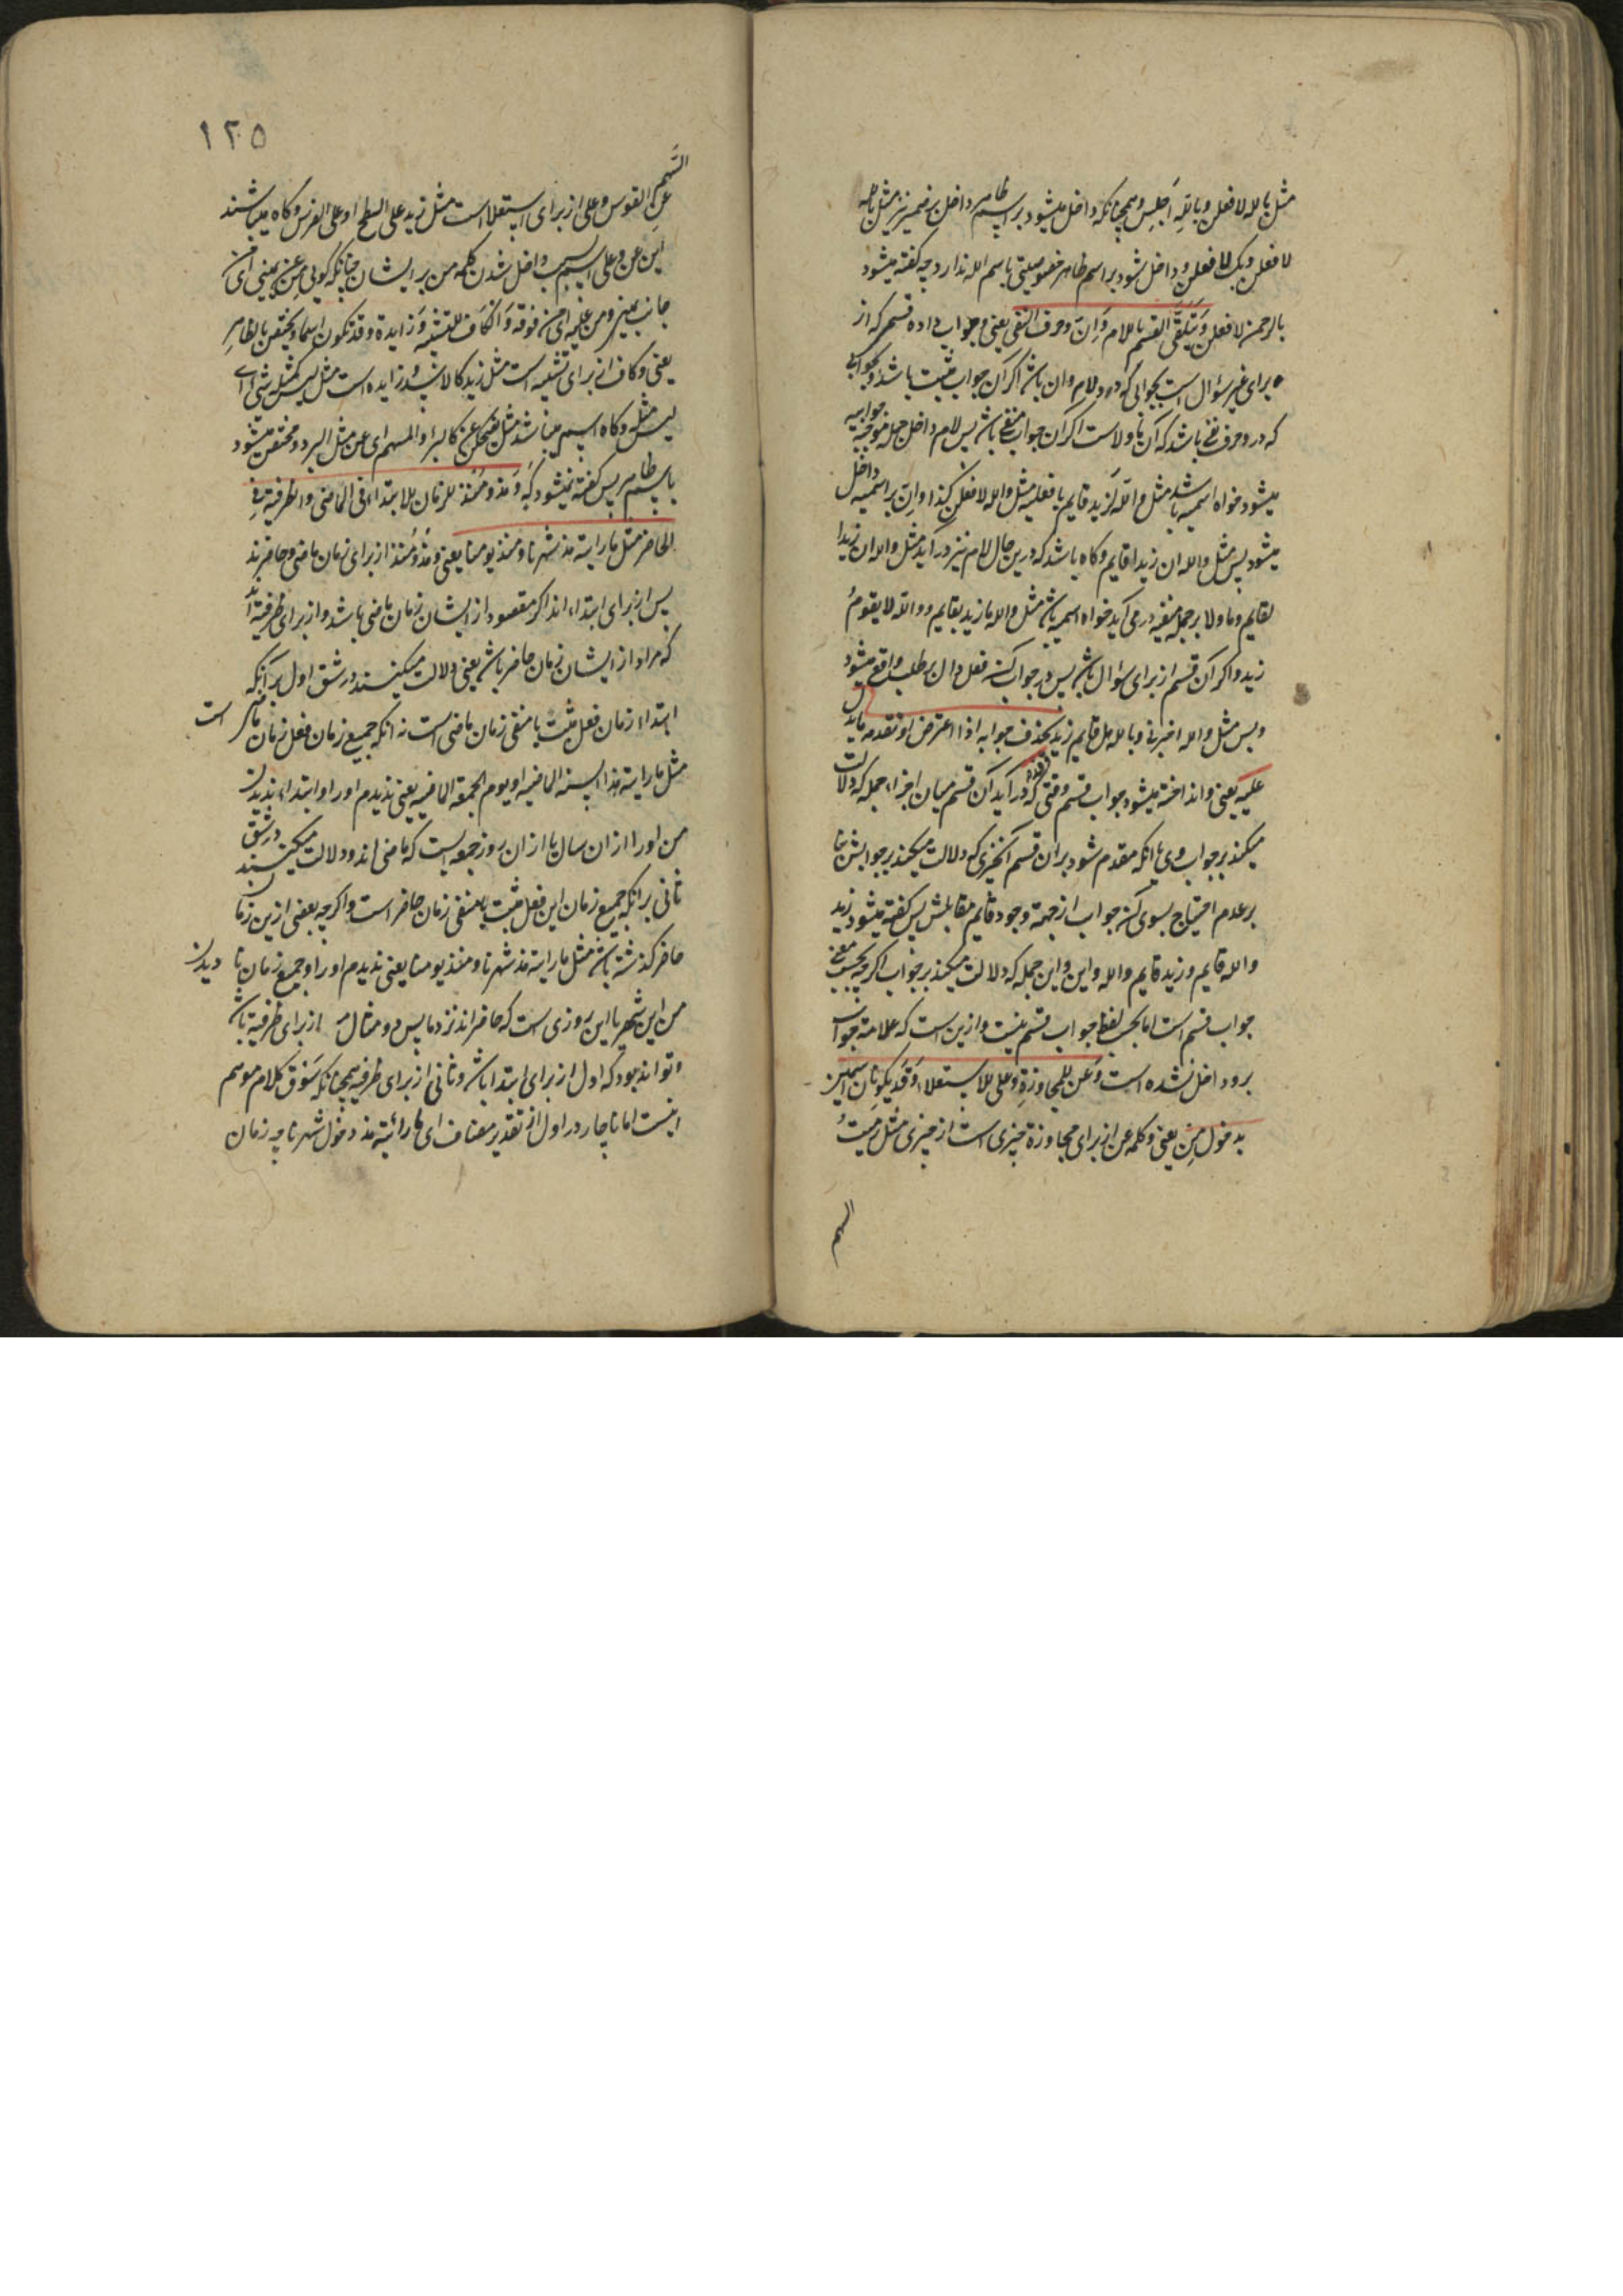 مثل بالله لافعلن وبالله اجلس وهمچنانکه داخل میشود بر اسم ظاهر داخل بر ضمیر نیز مثل به
لافعلن وبک لافعلن و داخل شود بر اسم ظاهر خصوصیتی باسم الله ندارد چه کفته میشود
بالرحمن لافعلن ویتلقی القسم باللام وان وحرف النفی یعنی وجواب داده قسم که از
برای غیر سؤال است بجوابی که در و لام وان باشد اکر آن جواب مثبت باشد و بجوابی
که در و حرف نفی باشد که آن ما ولا است اکر آن جواب منفی باشد پس لام داخل جمله موجبه جوابیه
میشود خواه اسمیه باشد مثل والله لزید قایم یا فعلیه مثل والله لافعلن کذا وان بر اسمیه داخل
میشود پس مثل والله ان زیدا قایم وکاه باشد که درین حال لام نیز در آید مثل والله ان زیدا
لقایم وما ولا بر جمله منفیه در می آید خواه اسمیه باشد مثل والله ما زید بقایم و والله لا یقوم
زید واکر آن قسم از برای سؤال باشد پس در جواب فعل دال بر طلب واقع میشود
وبس مثل والله اخبرنی وبالله هل قایم زید ویحذف جوابه اذا اعترض او تقدمه ما یدل
علیه یعنی وانداخته میشود جواب قسم وقتی که در آید آن قسم میان اجزاء جمله که دلالت
میکند بر جواب وی یا آنکه مقدم شود بر آن قسم آنچیزی که دلالت میکند بر جوابش بنا
بر عدم احتیاج بسوی جواب از جهة وجود قایم مقامش پس کفته میشود زید
والله قایم وزید قایم والله واین جمله که دلالت میکند بر جواب اکرچه بحسب معنی
جواب قسم است اما بحسب لفظ جواب قسم نیست وازین است که علامة جواب
برو داخل نشده است وعن للمجاوزة وعلی للاستعلاء وقد یکونان اسمین
بدخول من یعنی وکلمه عن از برای مجاوزة چیزی است از چیزی مثل رمیت
السهم
١٢٥
السهم
عن القوس وعلی از برای استعلا است مثل زید علی السطح او علی الفرس وکاه میباشند
این عن وعلی اسم بسبب داخل شدن کلمه من بر ایشان چنانکه کویی من عن یمینی ای من
جانب یمینی ومن علیه ای من فوقه والکاف للتشبیه وزایدة وقد تکون اسما ویختص بالظاهر
یعنی وکاف از برای تشبیه است مثل زید کالاسد وزایده است مثل لیس کمثله شیء ای
لیس مثله وکاه اسم میباشد مثل یضحکن عن کالبرد المنهم ای عن مثل البرد ومختص میشود
باسم ظاهر پس کفته نمیشود که ومذ ومنذ للزمان للابتداء فی الماضی والظرفیة فی
الحاضر مثل ما رایته مذ شهرنا ومنذ یومنا یعنی ومذ ومنذ از برای زمان ماضی وحاضرند
پس از برای ابتداء اند اکر مقصود از ایشان زمان ماضی باشد واز برای ظرفیة اند
که مراد از ایشان زمان حاضر باشد یعنی دلالت میکنند در شق اول بر آنکه
ابتداء زمان فعل مثبت یا منفی زمان ماضی است نه آنکه جمیع زمان فعل زمان ماضی است
مثل ما رایته مذ السنة الماضیه او یوم الجمعة الماضیه یعنی ندیدم او را وابتداء ندیدن
من او را از آن سال یا از آن روز جمعه است که ماضی اند ودلالت میکنند در شق
ثانی بر آنکه جمیع زمان این فعل مثبت یا منفی زمان حاضر است واکرچه بعضی ازین زمان
حاضر کذشته باشد مثل ما رایته مذ شهرنا ومنذ یومنا یعنی ندیدم او را وجمیع زمان نا دیدن
من این شهر یا این روزی است که حاضراند نزد ما پس دو مثال از برای ظرفیة باشد
وتواند بود که اول از برای ابتدا باشد وثانی از برای ظرفیة همچنانکه سوق کلام موهم
اینست اما ناچار در اول از تقدیر مضاف ای ما رائیته مذ دخول شهرنا چه زمان